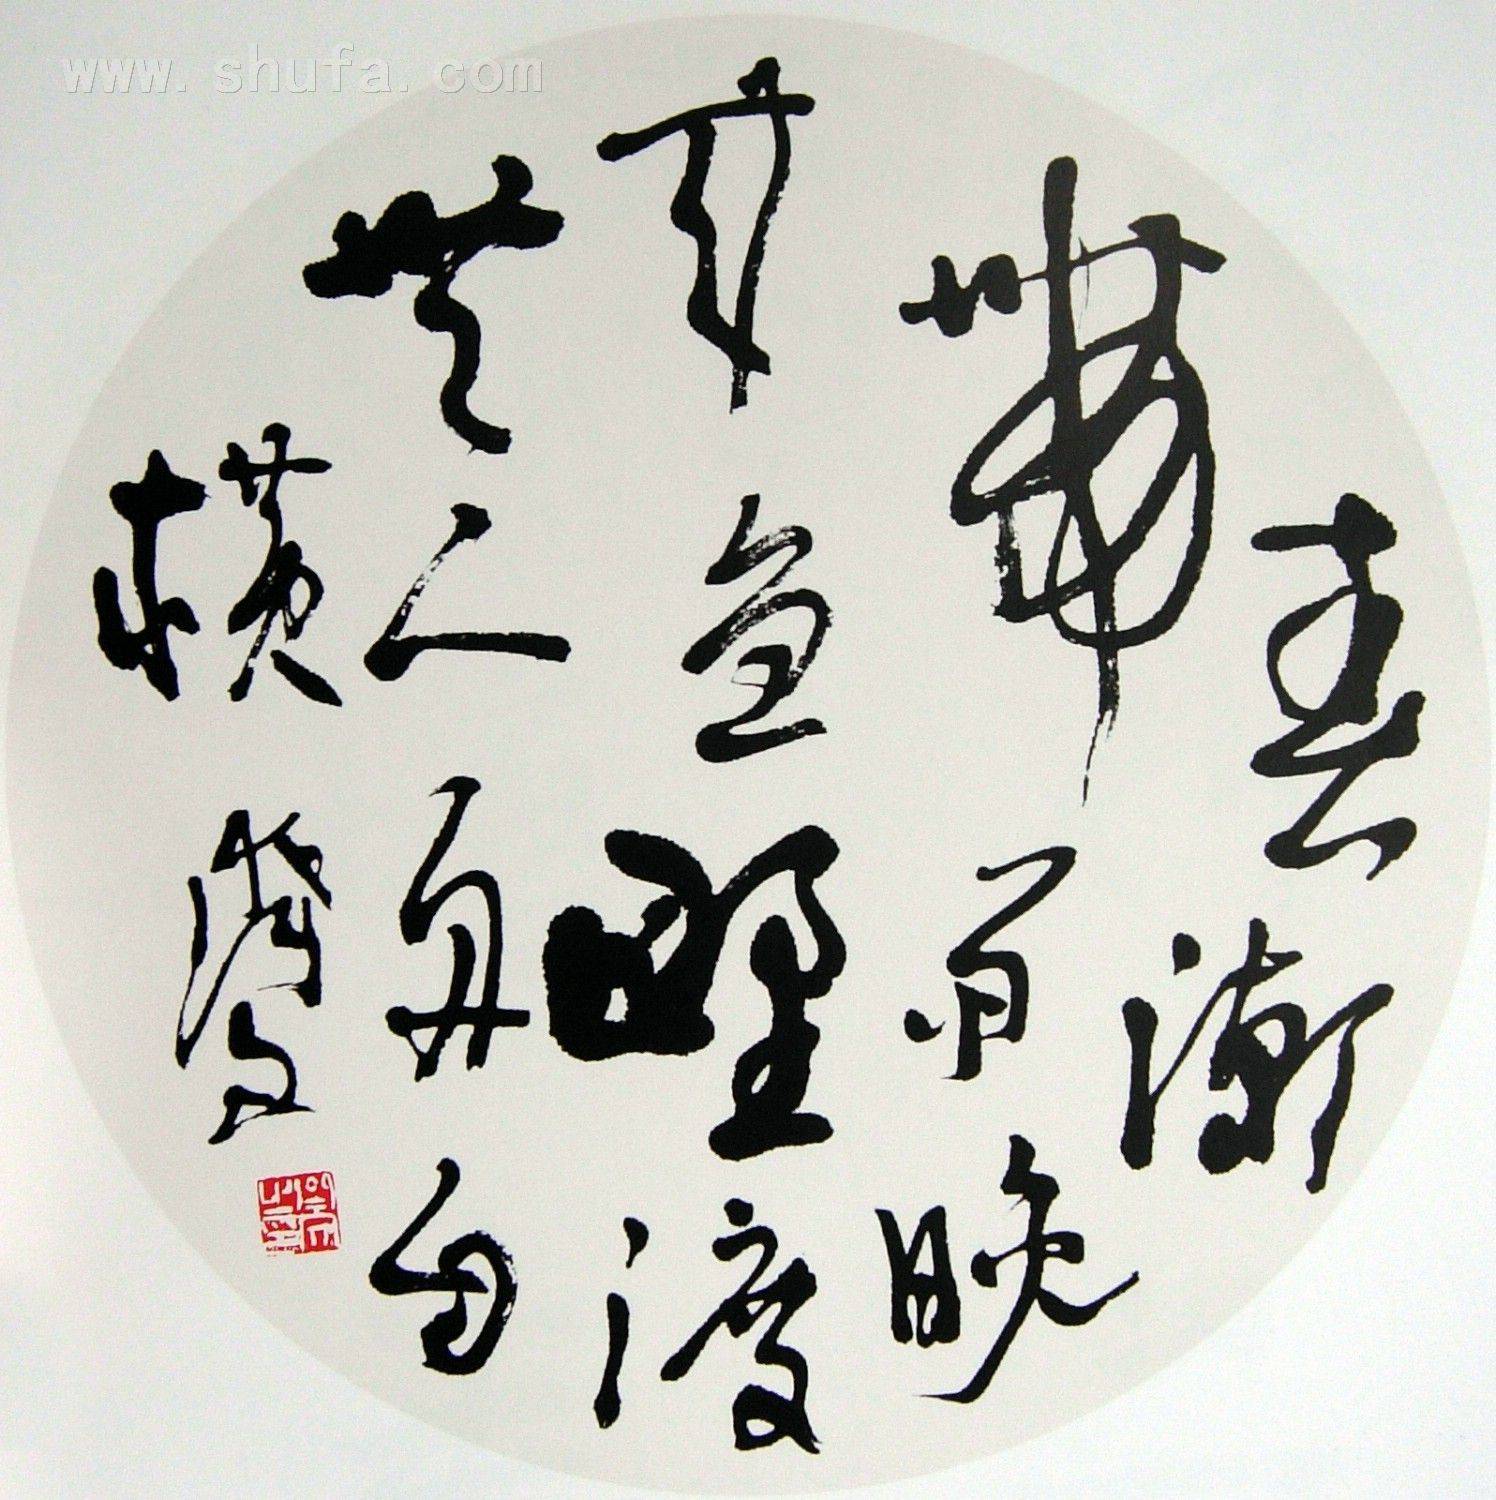 www.shufa.com
春潮
帶雨晚
來急野渡
無人舟自
橫